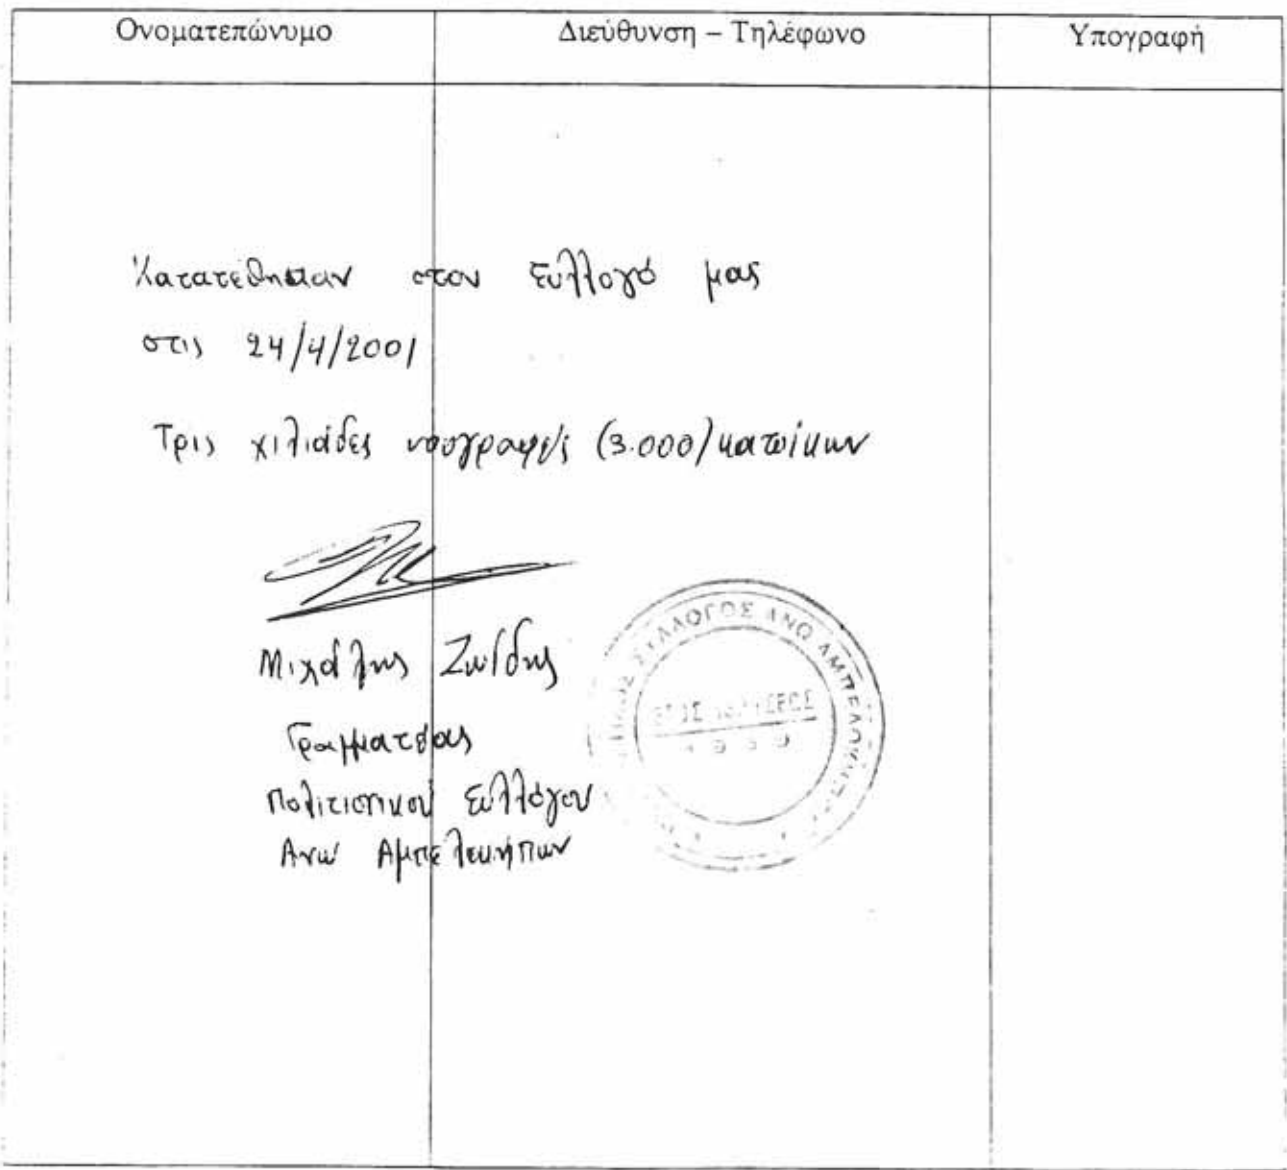 Ονοματεπώνυμο Διεύθυνση – Τηλέφωνο Υπογραφή
Κατατέθησαν στον Σύλλογό μας
στις 24/4/2001
Τρις χιλιάδες υπογραφές (3.000) κατοίκων
Μιχάλης Ζωίδης
Γραμματέας
Πολιτιστικού Συλλόγου
Ανω Αμπελοκήπων
ΣΥΛΛΟΓΟΣ ΑΝΩ
ΕΤΟΣ ΙΔΡΥΣΕΩΣ